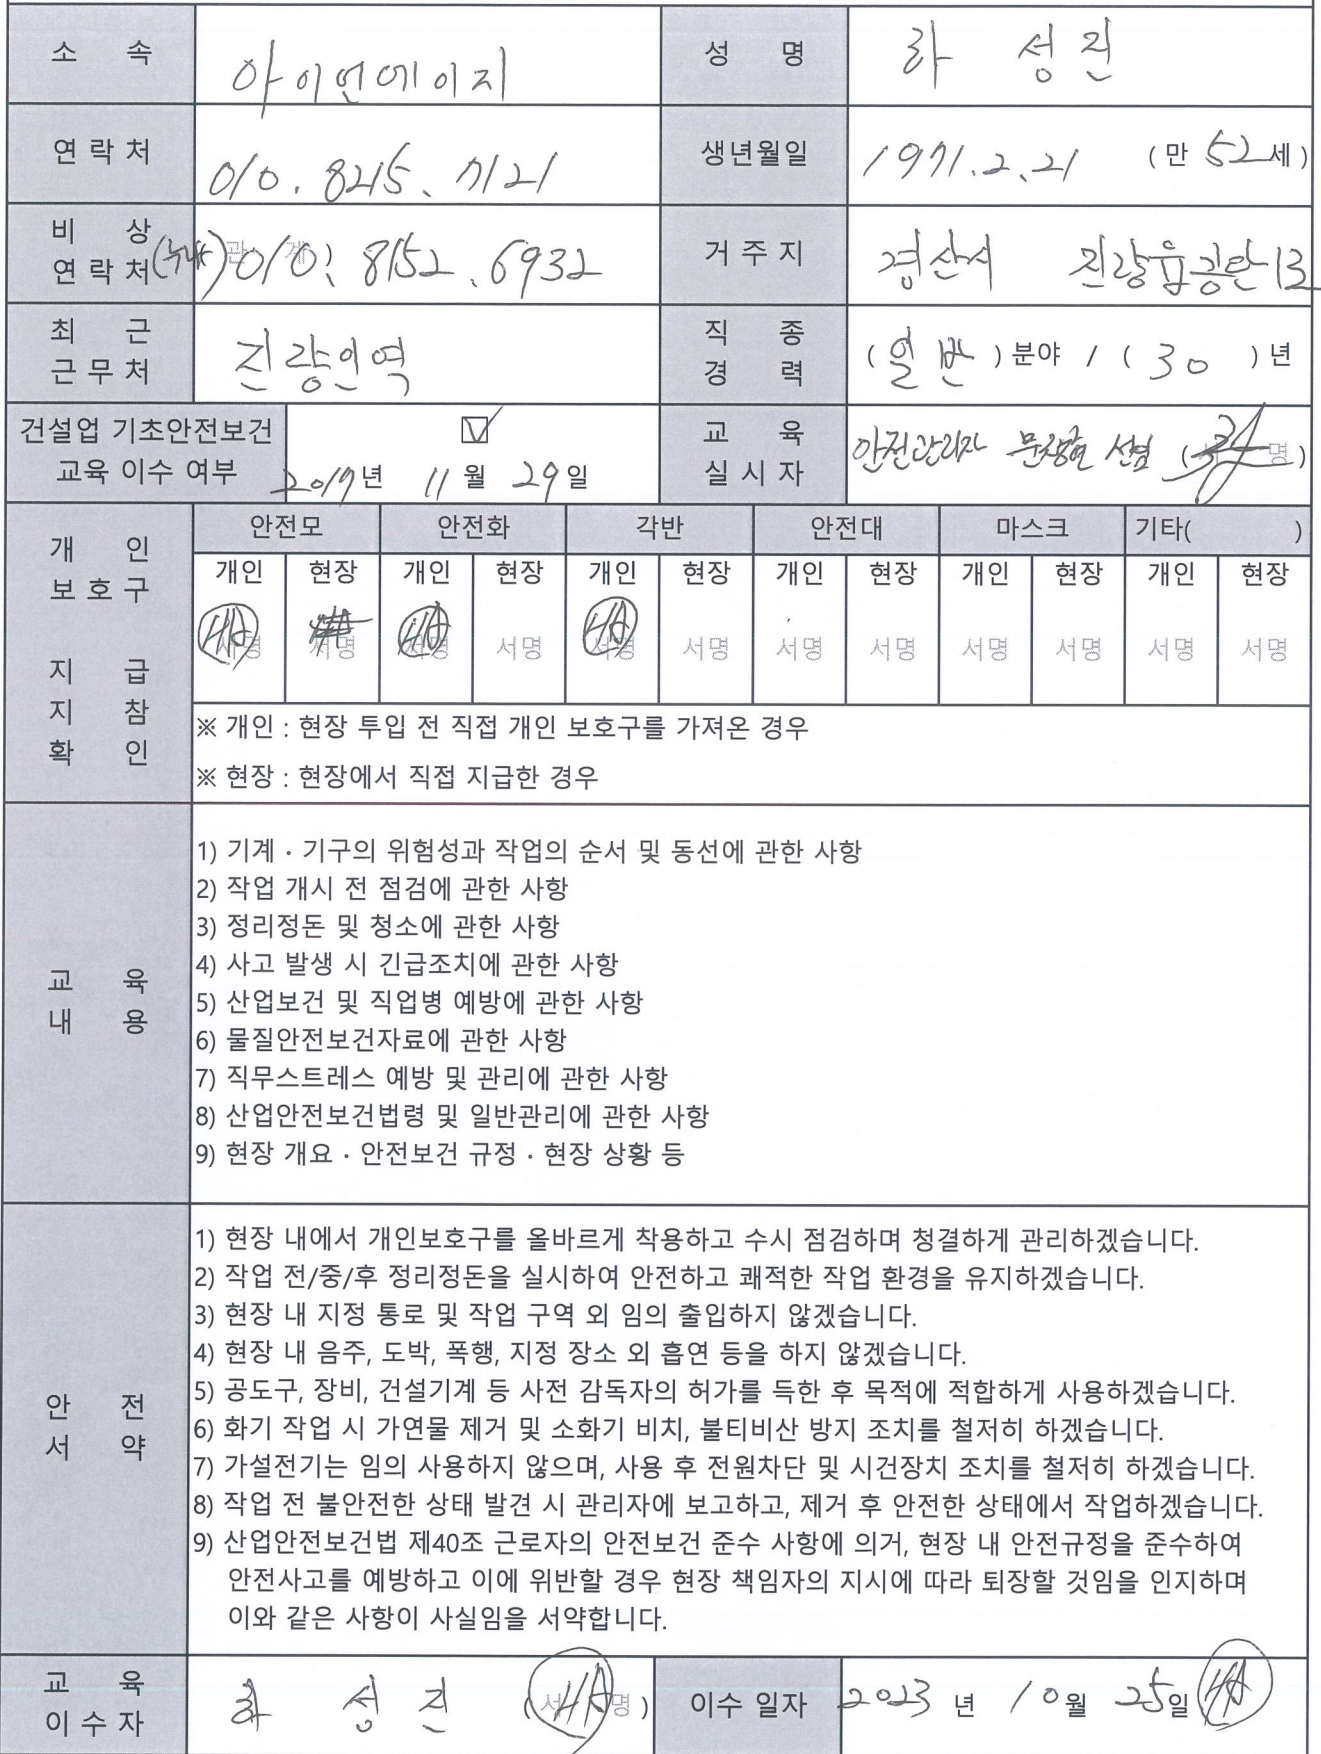 소 속 아이언에이지 성 명 하 성진
연락처 010. 8215. 7121 생년월일 1971.2.21 (만 52세)
비 상 연락처 (누나) 관 계 010. 8152. 6932 거주지 경산시 진량읍 공단
최 근 근무처 진량인역 직 종 경 력 (일반) 분야 / (30) 년
건설업 기초안전보건 교육 이수 여부 ☑ 2017년 11월 29일 교 육 실시자 안전관리자 선임 (서명)
개 인 보호구 지 급 지 참 확 인
안전모 안전화 각반 안전대 마스크 기타( )
개인 현장 개인 현장 개인 현장 개인 현장 개인 현장 개인 현장
서명 서명 서명 서명 서명 서명 서명 서명 서명 서명 서명 서명
※ 개인 : 현장 투입 전 직접 개인 보호구를 가져온 경우
※ 현장 : 현장에서 직접 지급한 경우
교 육 내 용
1) 기계 · 기구의 위험성과 작업의 순서 및 동선에 관한 사항
2) 작업 개시 전 점검에 관한 사항
3) 정리정돈 및 청소에 관한 사항
4) 사고 발생 시 긴급조치에 관한 사항
5) 산업보건 및 직업병 예방에 관한 사항
6) 물질안전보건자료에 관한 사항
7) 직무스트레스 예방 및 관리에 관한 사항
8) 산업안전보건법령 및 일반관리에 관한 사항
9) 현장 개요 · 안전보건 규정 · 현장 상황 등
안 전 서 약
1) 현장 내에서 개인보호구를 올바르게 착용하고 수시 점검하며 청결하게 관리하겠습니다.
2) 작업 전/중/후 정리정돈을 실시하여 안전하고 쾌적한 작업 환경을 유지하겠습니다.
3) 현장 내 지정 통로 및 작업 구역 외 임의 출입하지 않겠습니다.
4) 현장 내 음주, 도박, 폭행, 지정 장소 외 흡연 등을 하지 않겠습니다.
5) 공도구, 장비, 건설기계 등 사전 감독자의 허가를 득한 후 목적에 적합하게 사용하겠습니다.
6) 화기 작업 시 가연물 제거 및 소화기 비치, 불티비산 방지 조치를 철저히 하겠습니다.
7) 가설전기는 임의 사용하지 않으며, 사용 후 전원차단 및 시건장치 조치를 철저히 하겠습니다.
8) 작업 전 불안전한 상태 발견 시 관리자에 보고하고, 제거 후 안전한 상태에서 작업하겠습니다.
9) 산업안전보건법 제40조 근로자의 안전보건 준수 사항에 의거, 현장 내 안전규정을 준수하여
안전사고를 예방하고 이에 위반할 경우 현장 책임자의 지시에 따라 퇴장할 것임을 인지하며
이와 같은 사항이 사실임을 서약합니다.
교 육 이수자 하 성 진 (서명) 이수 일자 2023 년 10월 25일